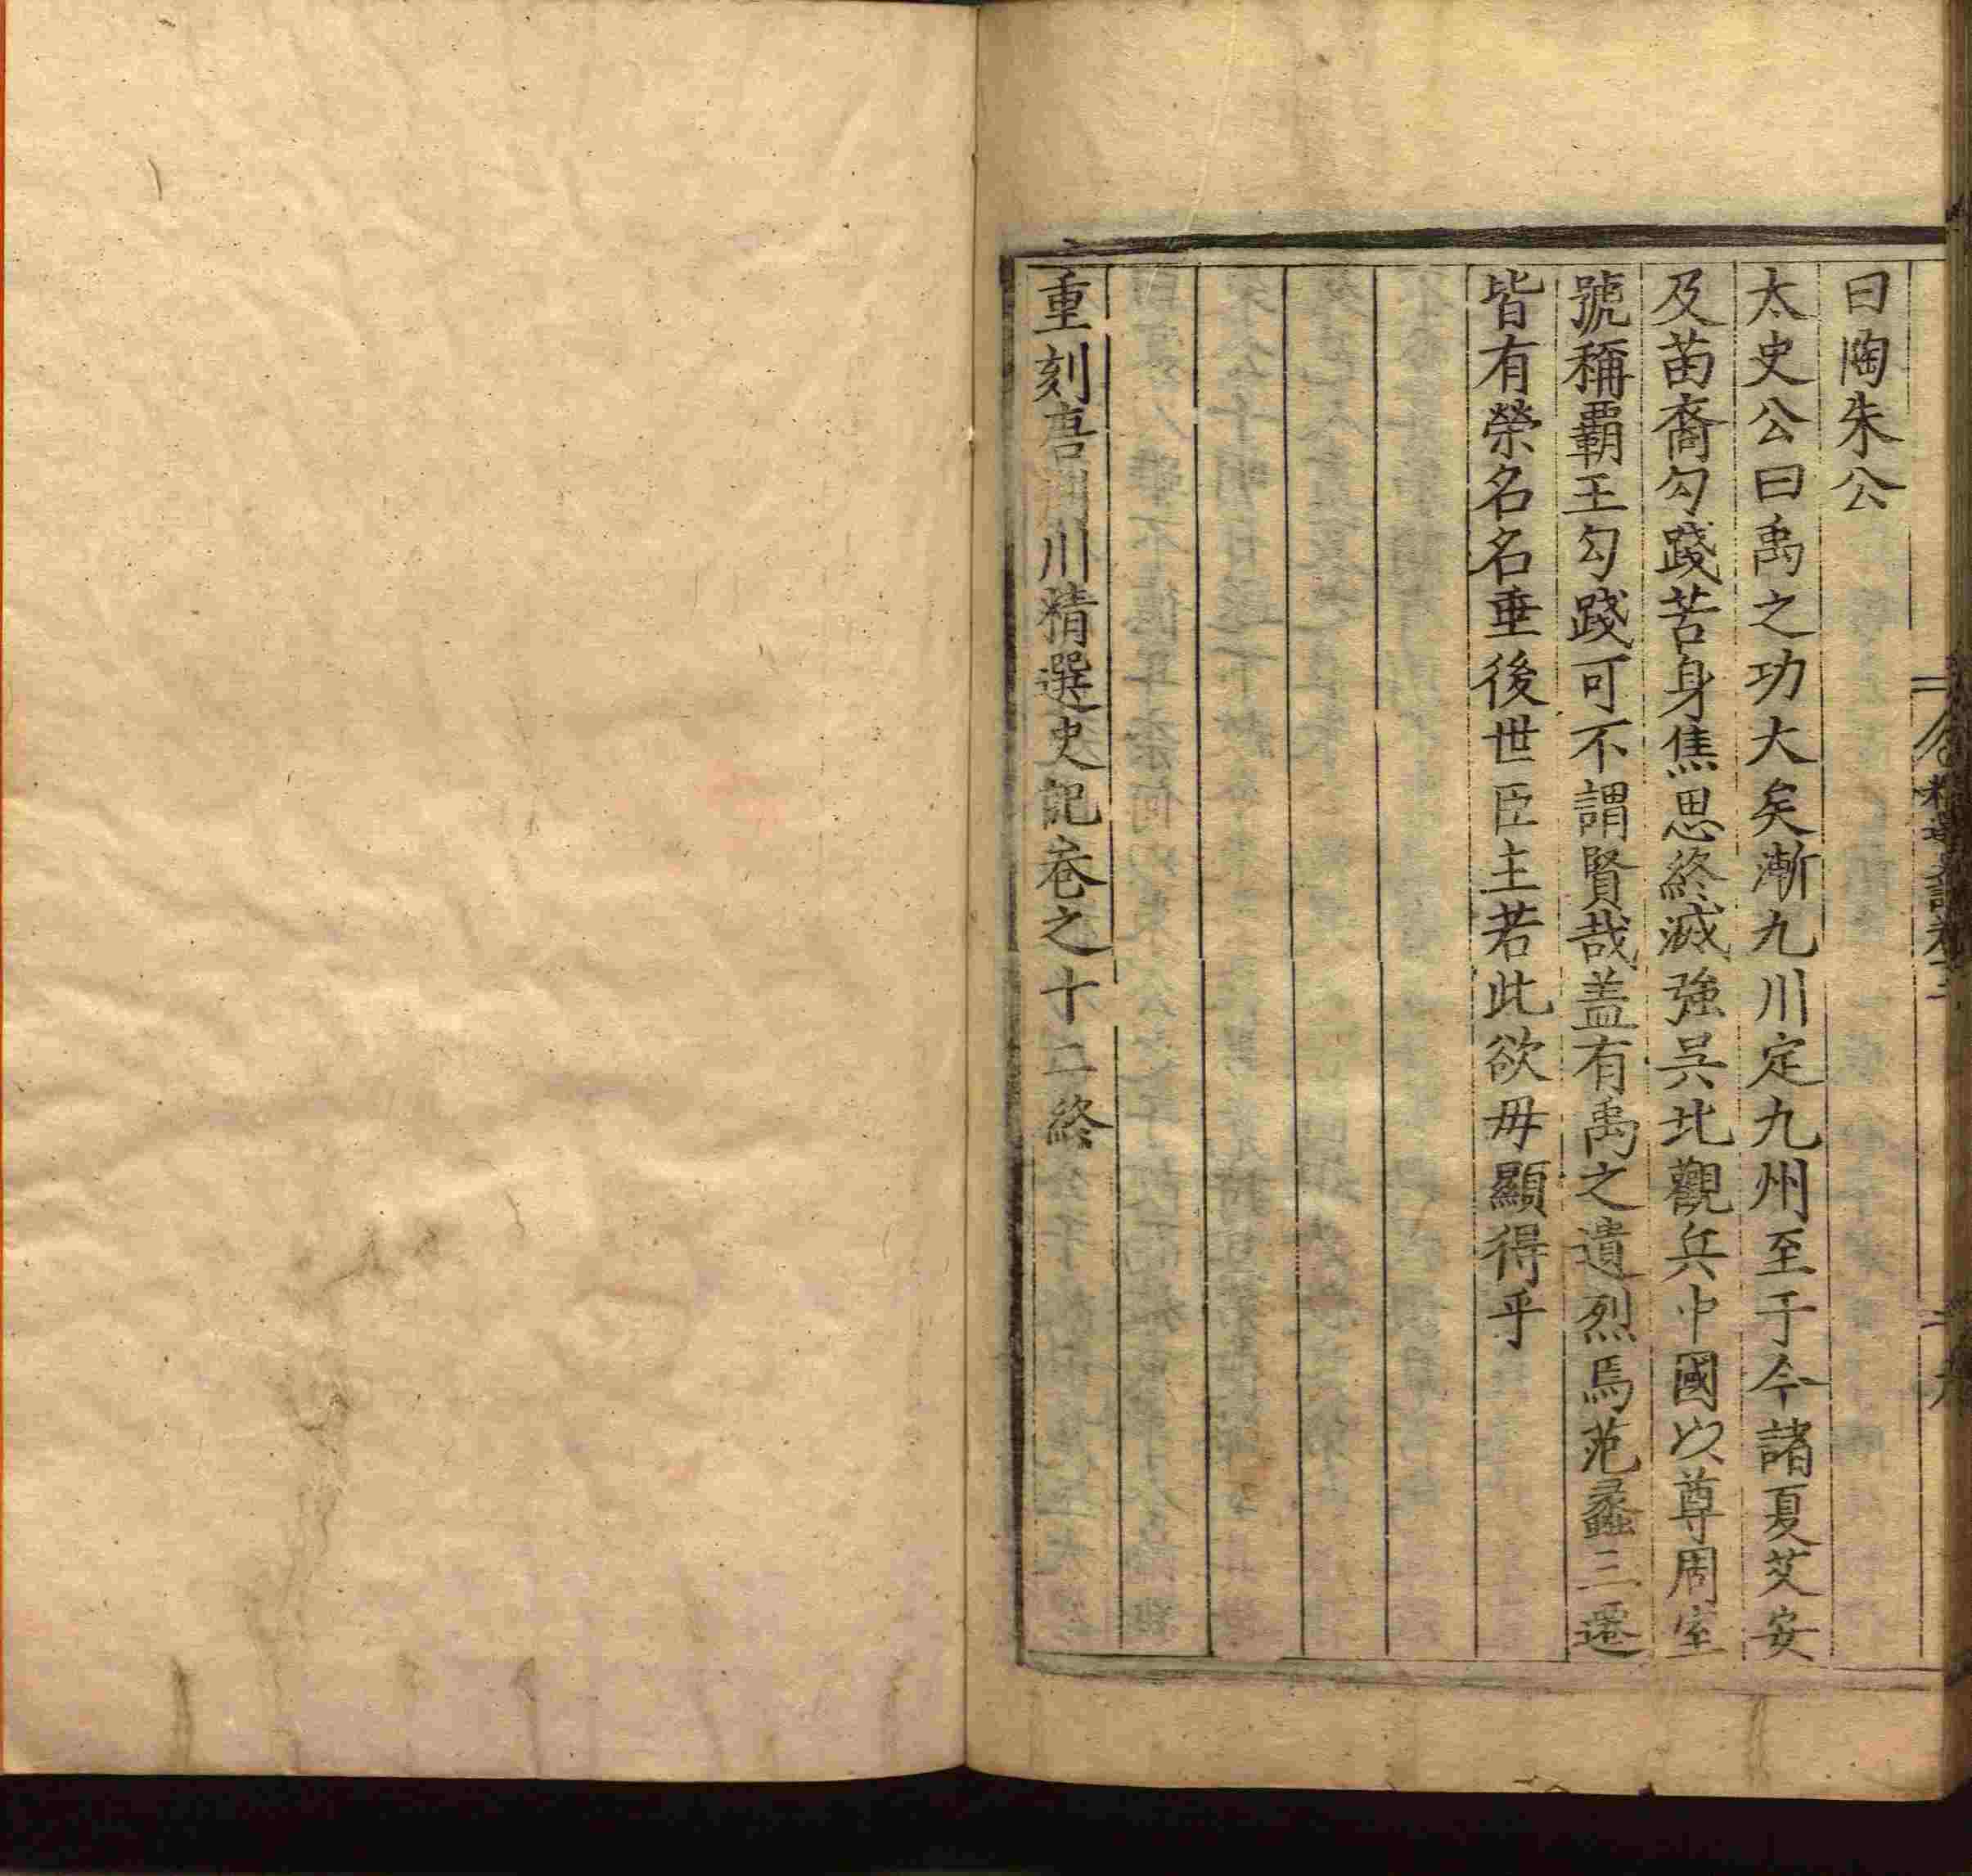 曰陶朱公
太史公曰禹之功大矣漸九川定九州至于今諸夏艾安
及苗裔勾踐苦身焦思終滅強吳北觀兵中國以尊周室
號稱覇王勾踐可不謂賢哉盖有禹之遺烈焉范蠡三遷
皆有榮名名垂後世臣主若此欲毋顯得乎
重刻唐荆川精選史記卷之十二終